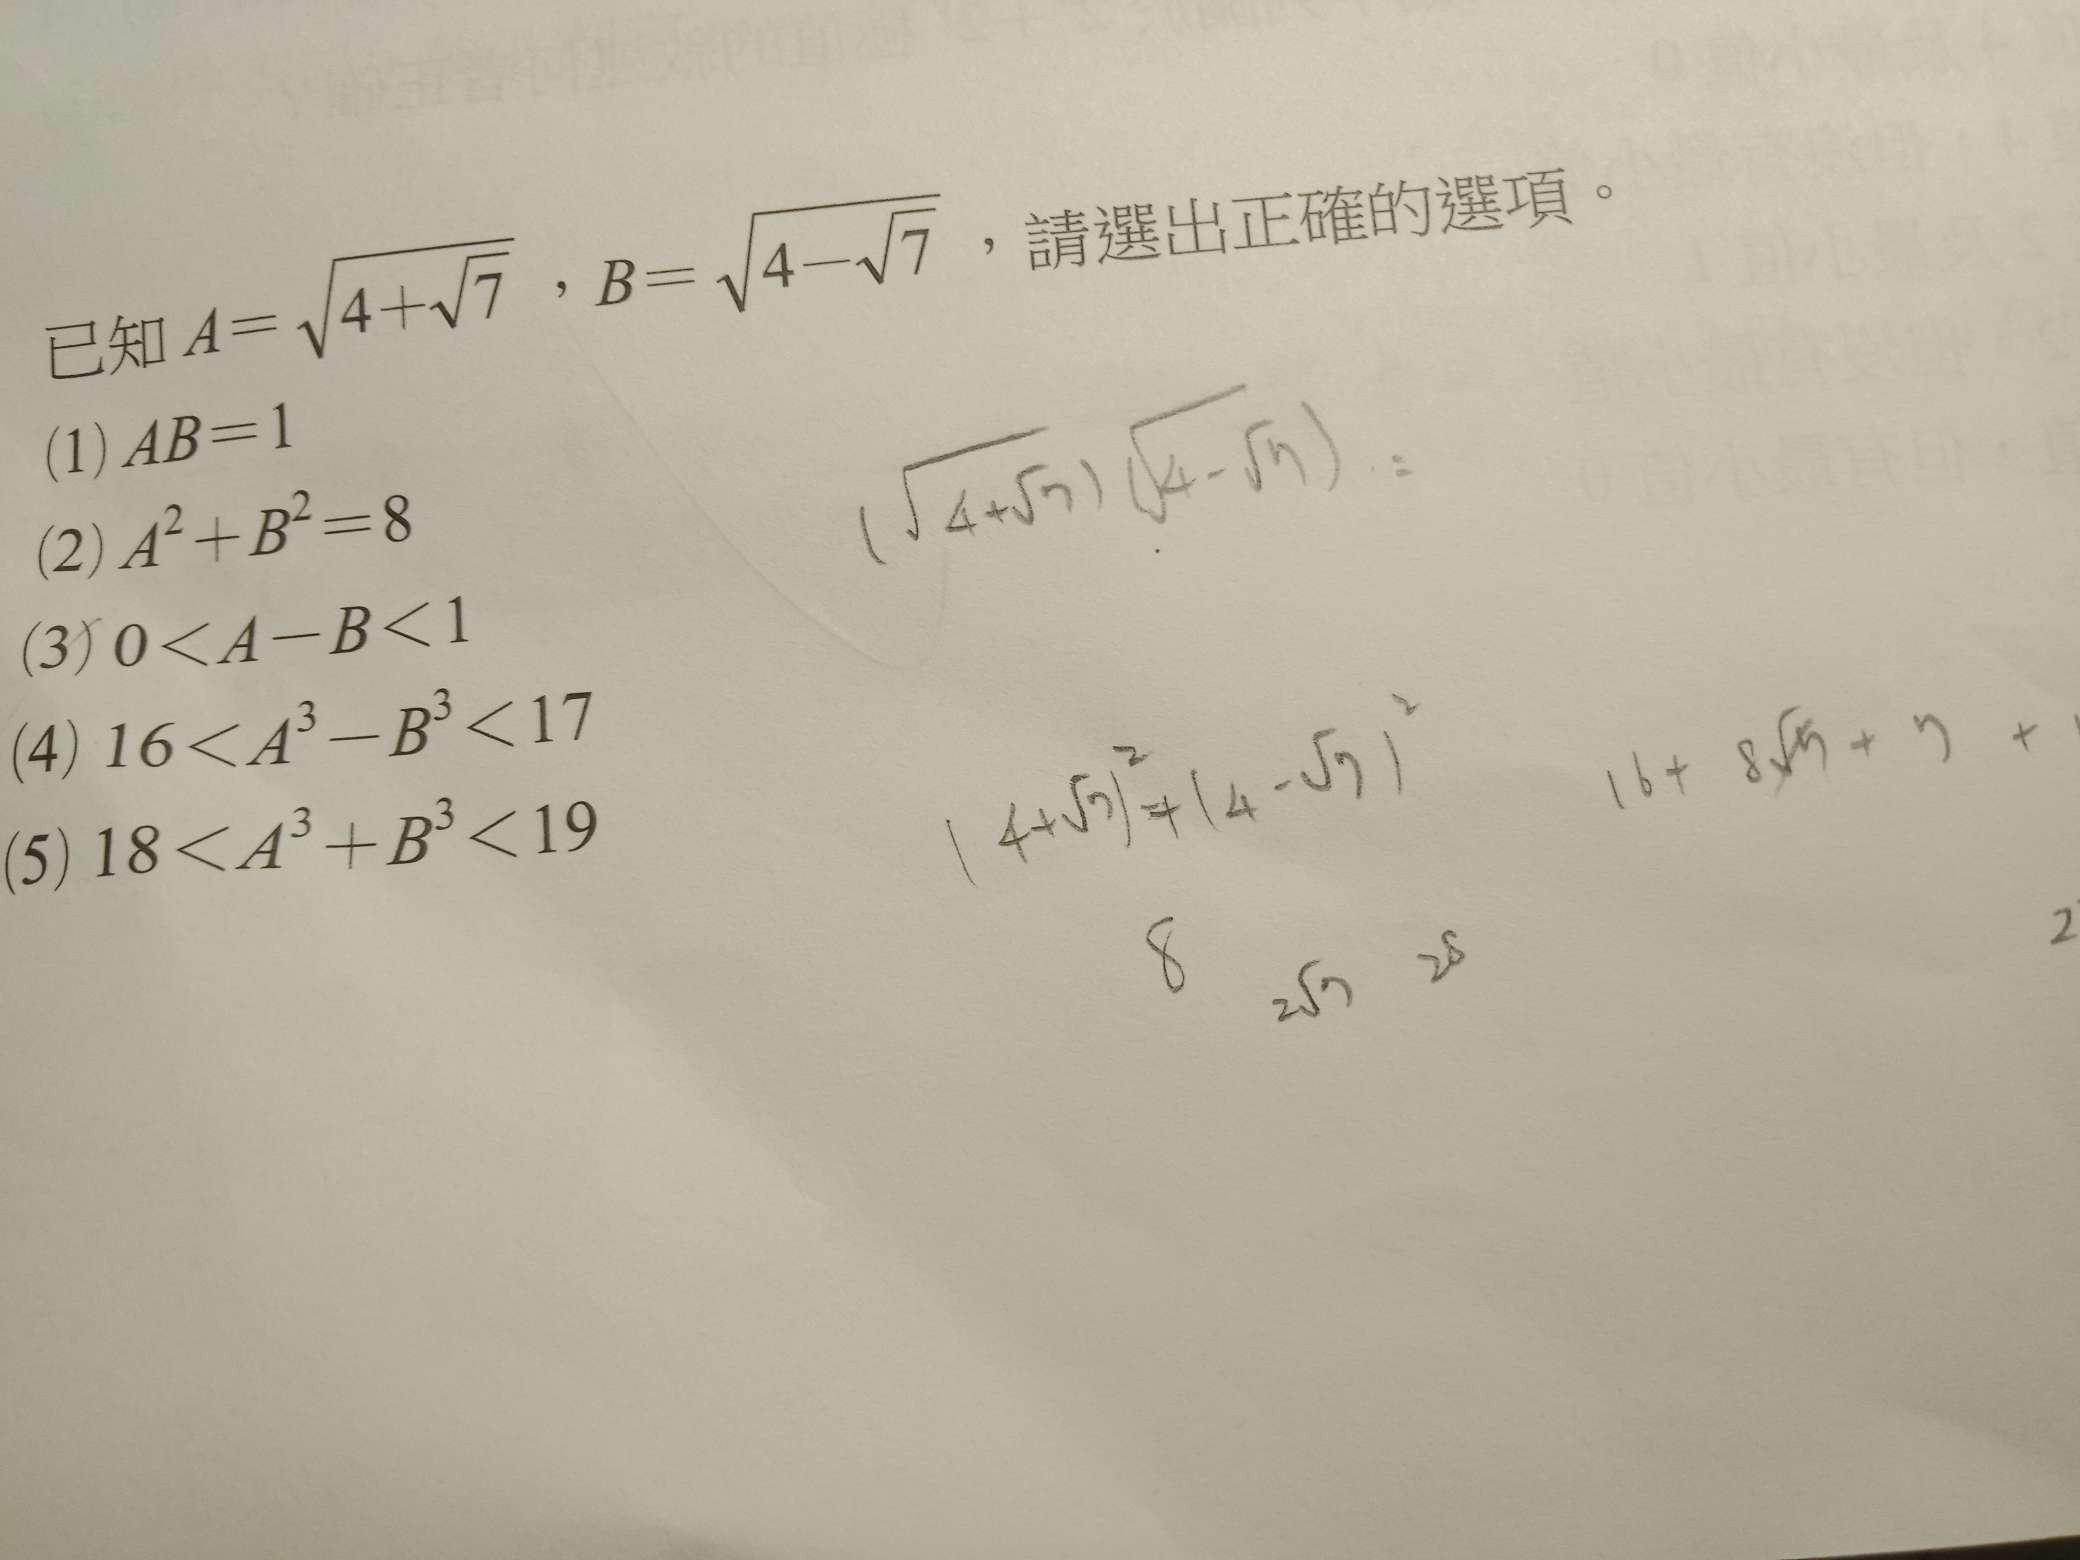 已知 A=√(4+√7) ，B=√(4−√7) ，請選出正確的選項。
(1) AB=1
(2) A²+B²=8
(3) 0<A−B<1
(4) 16<A³−B³<17
(5) 18<A³+B³<19
(√(4+√7)) (√(4-√7)) =
(4+√7)²+(4-√7)²
16+ 8√7 + 7 +
8
2√7 28